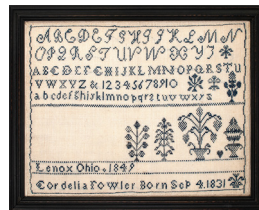 ABCDEFGHIJKLMN
OPQRSTUVWXYZ
ABCDEFGHIJKLMNOPQRSTU
VWXYZ & 12345678910
abcdefghiklmnopqrstuvwxyz
Lenox Ohio. 1849
Cordelia Fowler Born Sep 4. 1831